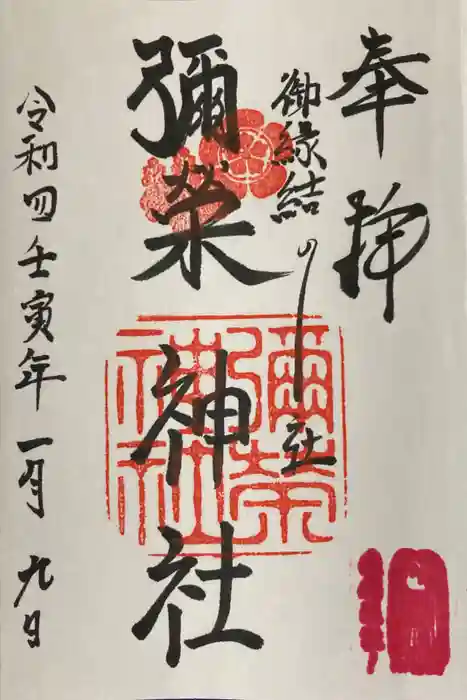 奉拝
御縁結の社
彌榮神社
令和四壬寅年一月九日
彌榮
神社